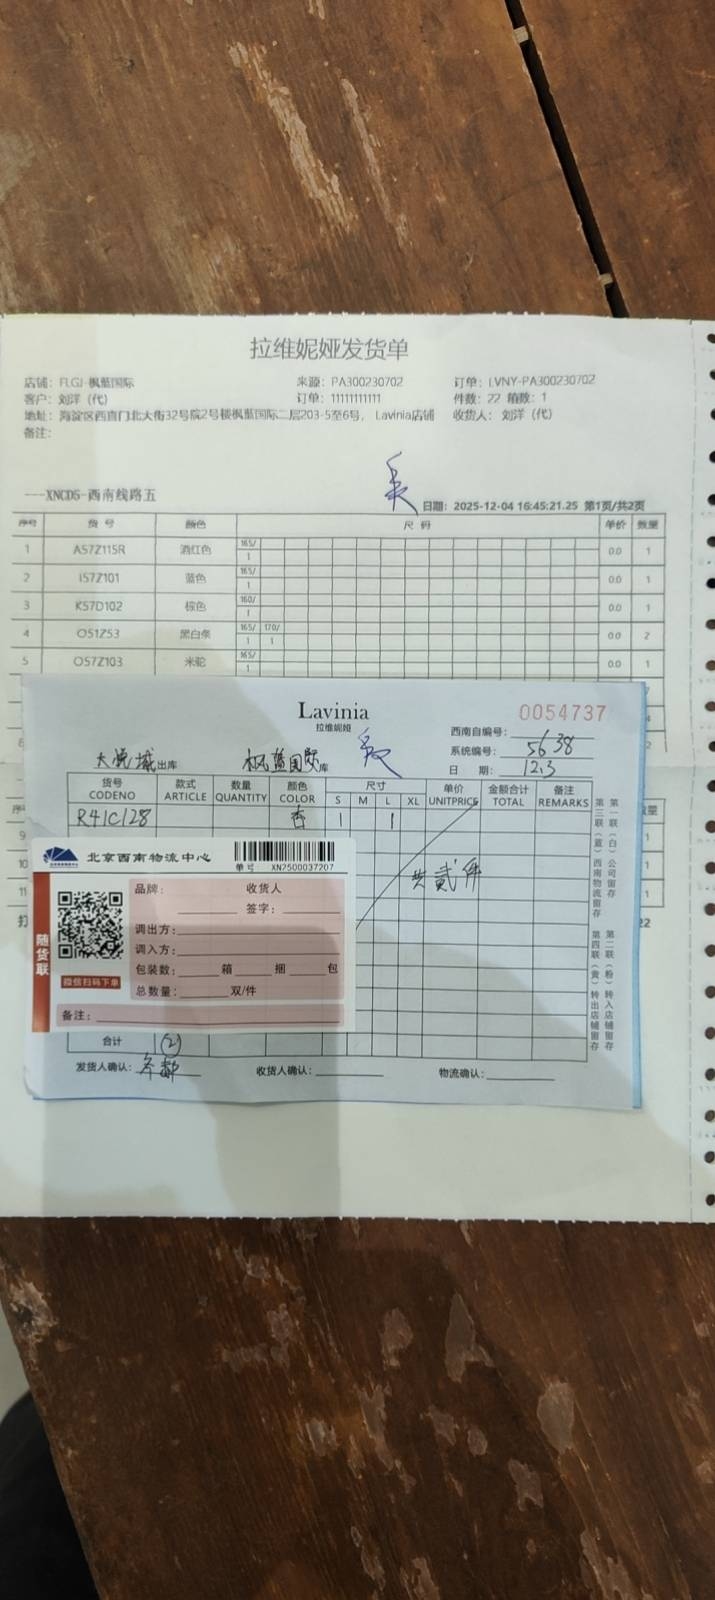 拉维妮娅发货单
店铺：FLGJ-枫蓝国际 来源：PA300230702 订单：LVNY-PA300230702
客户：刘洋（代） 订单：11111111111 件数：22 箱数：1
地址：海淀区西直门北大街32号院2号楼枫蓝国际二层203-5至6号， Lavinia店铺 收货人：刘洋（代）
备注：
---XNCD5-西南线路五
日期：2025-12-04 16:45:21.25 第1页/共2页
序号 货号 颜色 尺码 单价 数量
1 A57Z115R 酒红色 165/ 1 0.0 1
2 I57Z101 蓝色 165/ 1 0.0 1
3 K57D102 棕色 160/ 1 0.0 1
4 O51Z53 黑白条 165/ 170/ 1 1 0.0 2
5 O57Z103 米驼 165/ 1 0.0 1
Lavinia
拉维妮娅
0054737
西南自编号：
大悦城出库 枫蓝国际库 系统编号：5638
日 期：12.3
货号 款式 数量 颜色 尺寸 单价 金额合计 备注
CODENO ARTICLE QUANTITY COLOR S M L XL UNITPRICE TOTAL REMARKS
R41C128 杏 1 1
共贰件
北京西南物流中心
单号 XN2500037207
品牌： 收货人
签字：
调出方：
调入方：
包装数： 箱 捆 包
总数量： 双/件
备注：
随货联
微信扫码下单
合计 2
发货人确认： 收货人确认： 物流确认：
第一联（白）公司留存
第二联（粉）转入店铺留存
第三联（蓝）西南物流留存
第四联（黄）转出店铺留存
9 1
10 1
11 1
22